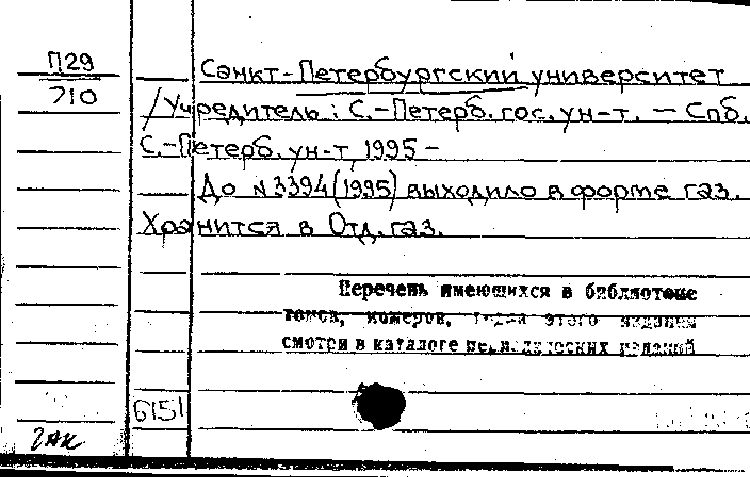 П29
710
Санкт-Петербургский университет
/Учредитель: С.-Петерб. гос. ун-т. — Спб.
С.-Петерб. ун-т, 1995 –
До N 3394 (1995) выходило в форме газ.
Хранится в Отд. газ.
Перечень имеющихся в библиотеке
томов, номеров, этого издания
смотри в каталоге изданий
6151
ГАК